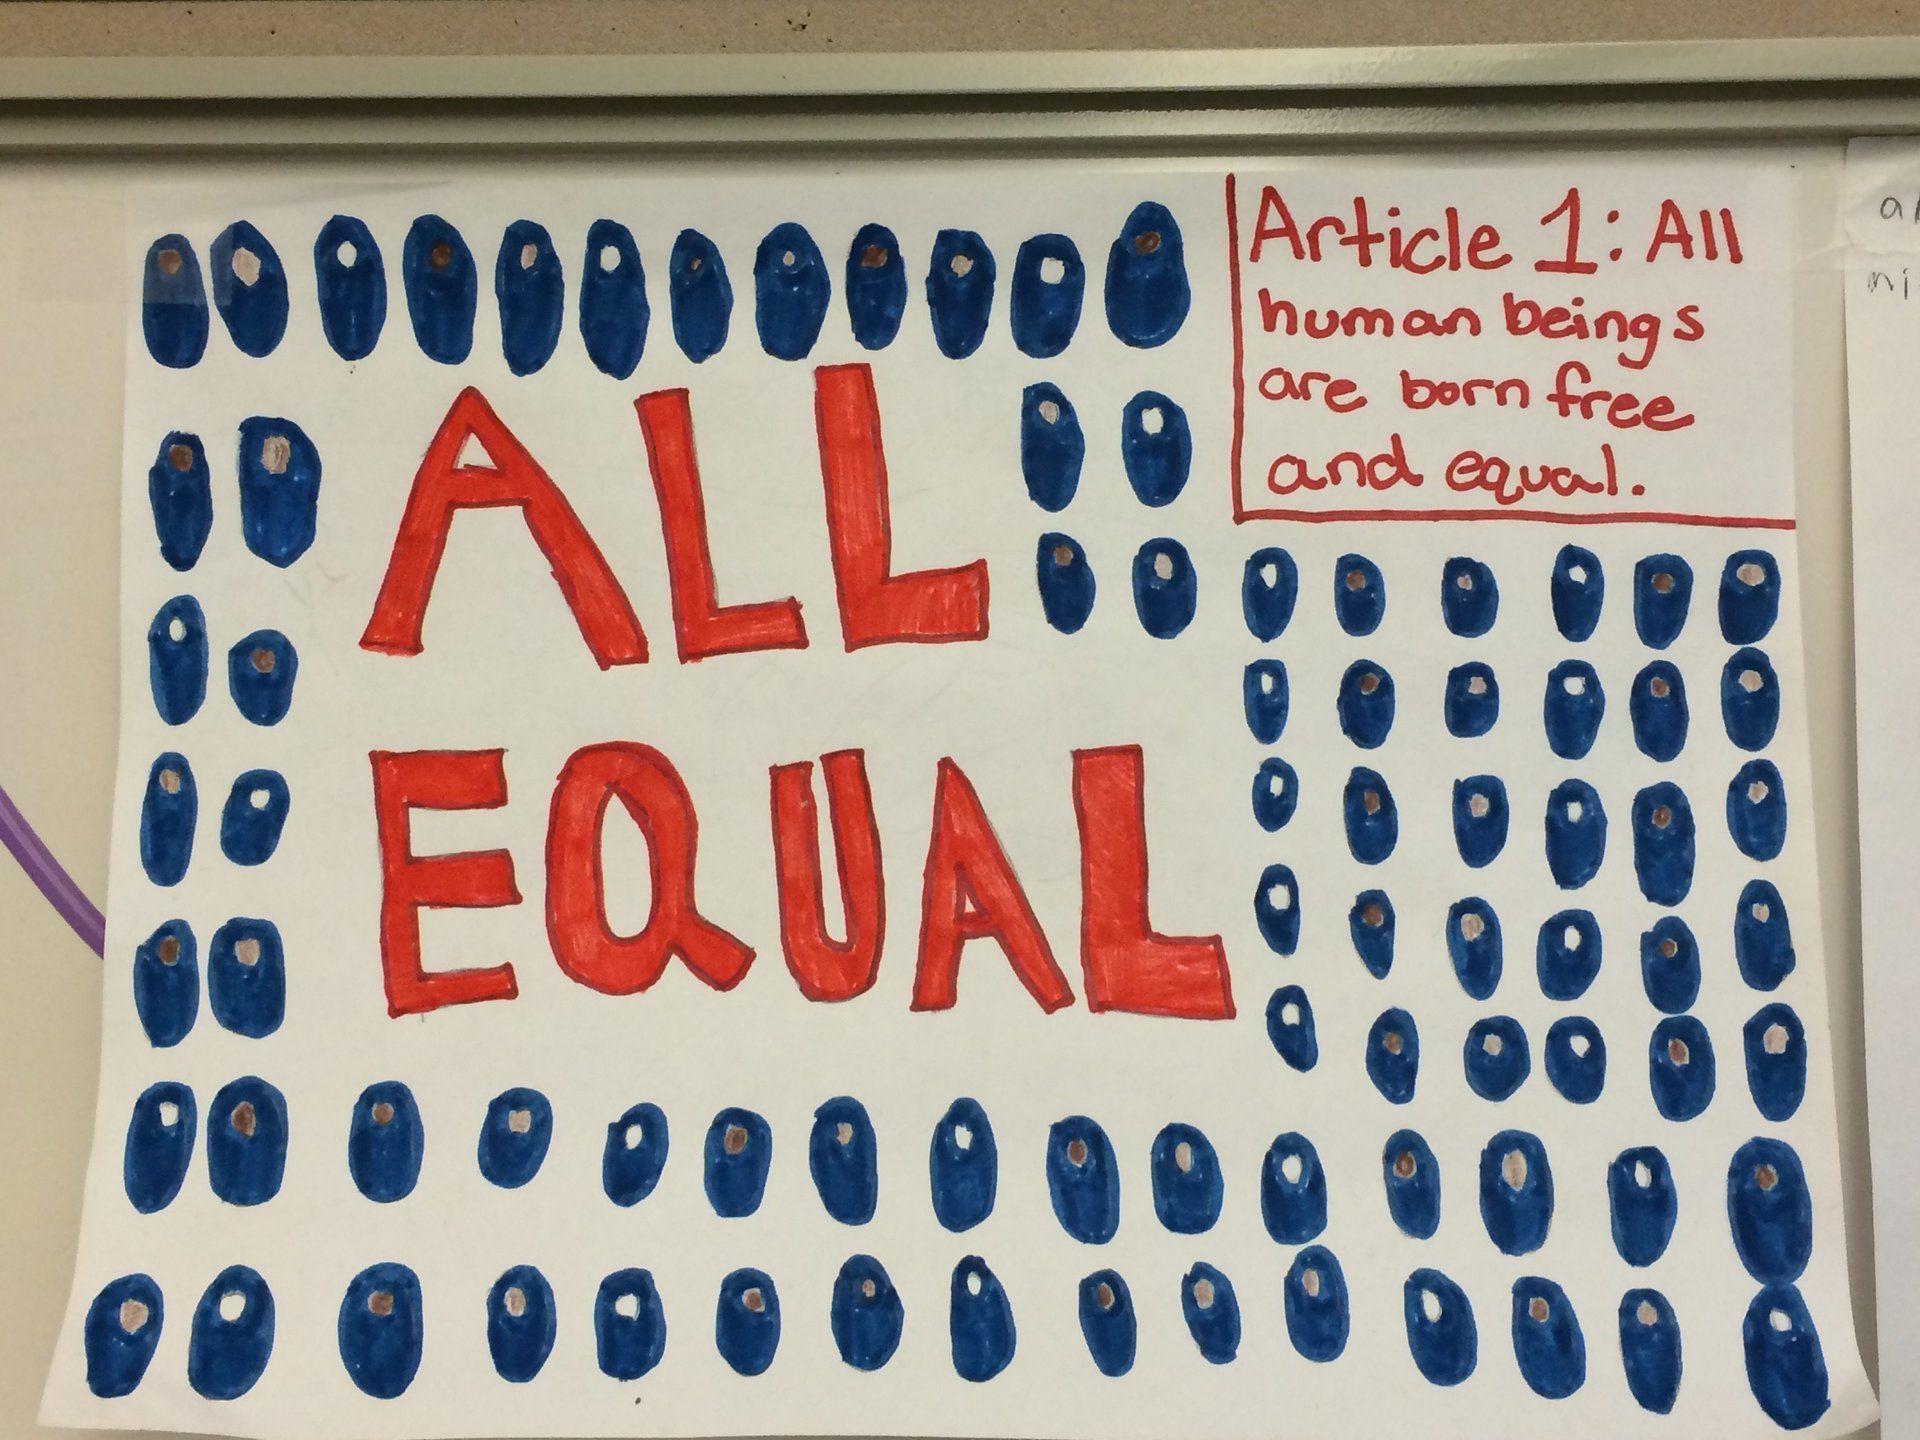 Article 1: All
human beings
are born free
and equal.
ALL
EQUAL